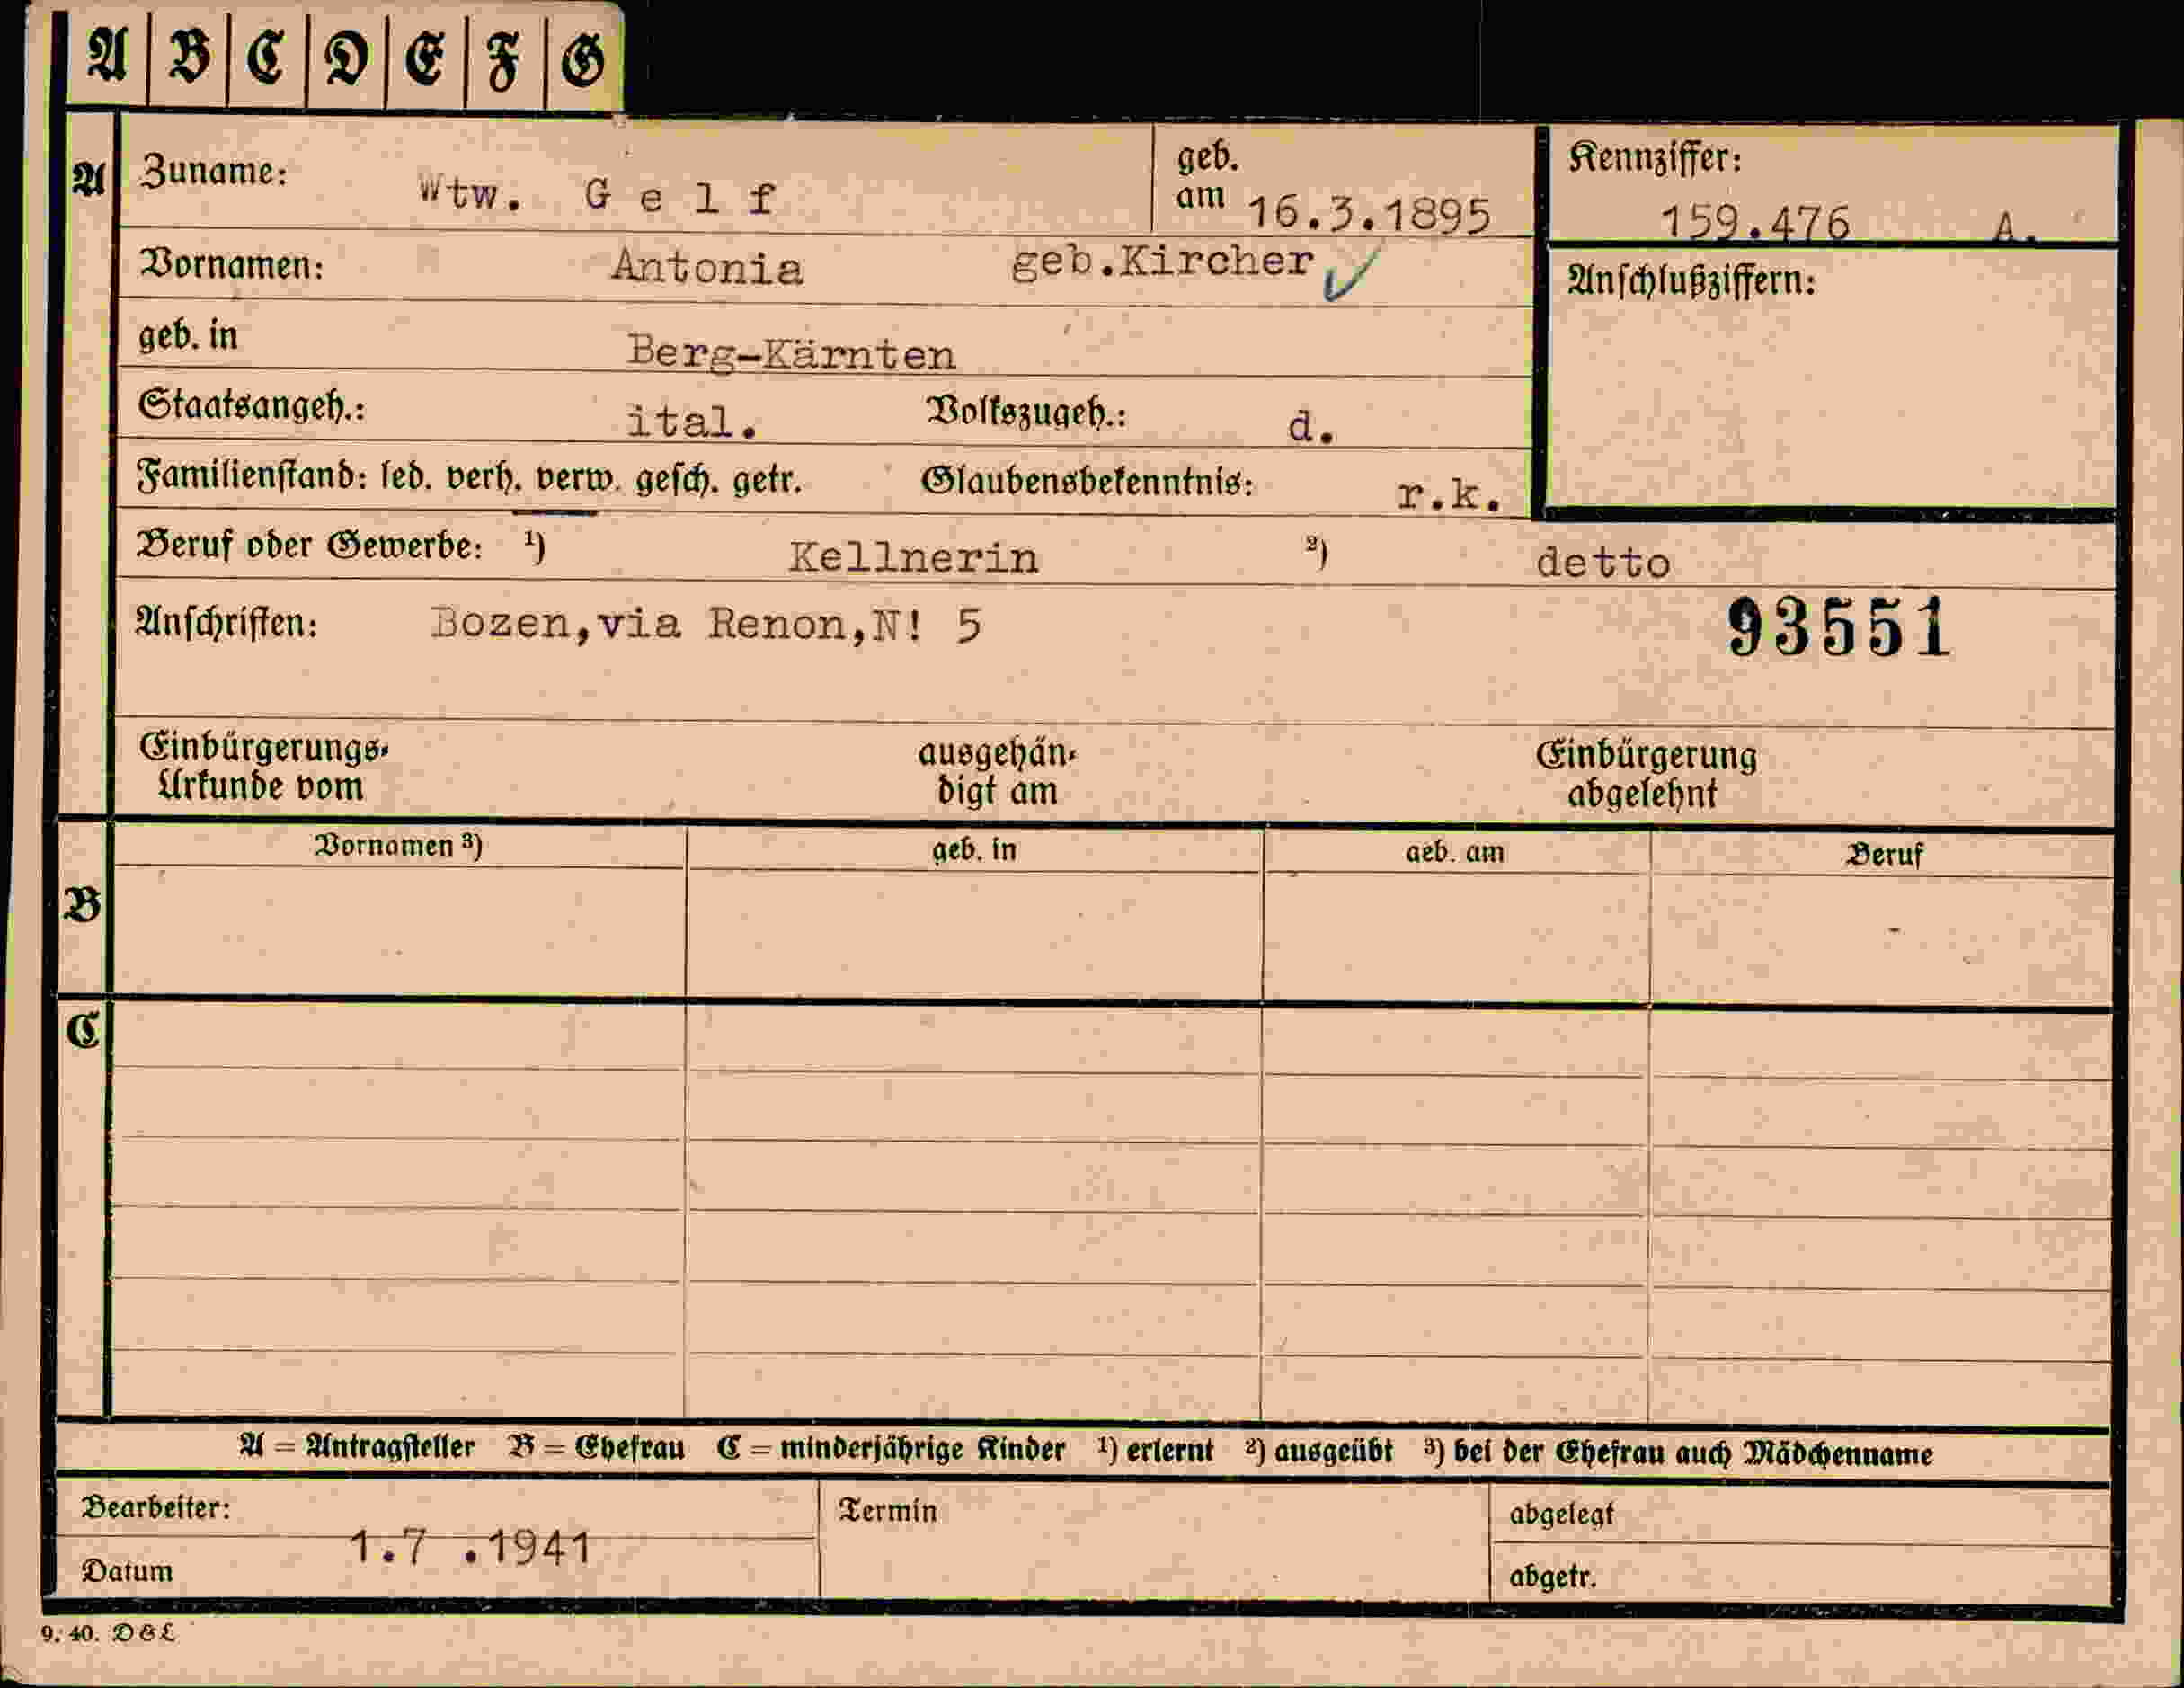 A B C D E F G
A Zuname: Wtw. G e l f geb. am 16.3.1895 Kennziffer: 159.476 A.
Vornamen: Antonia geb.Kircher Anschlußziffern:
geb. in Berg-Kärnten
Staatsangeh.: ital. Volkszugeh.: d.
Familienstand: led. verh. verw. gesch. getr. Glaubensbekenntnis: r.k.
Beruf oder Gewerbe: ¹) Kellnerin ²) detto
Anschriften: Bozen,via Renon,N! 5 93551
Einbürgerungs- ausgehän- Einbürgerung
Urkunde vom digt am abgelehnt
Vornamen ³) geb. in geb. am Beruf
B
C
A = Antragsteller B = Ehefrau C = minderjährige Kinder ¹) erlernt ²) ausgeübt ³) bei der Ehefrau auch Mädchenname
Bearbeiter: Termin abgelegt
1.7 .1941
Datum abgetr.
9. 40. D & L